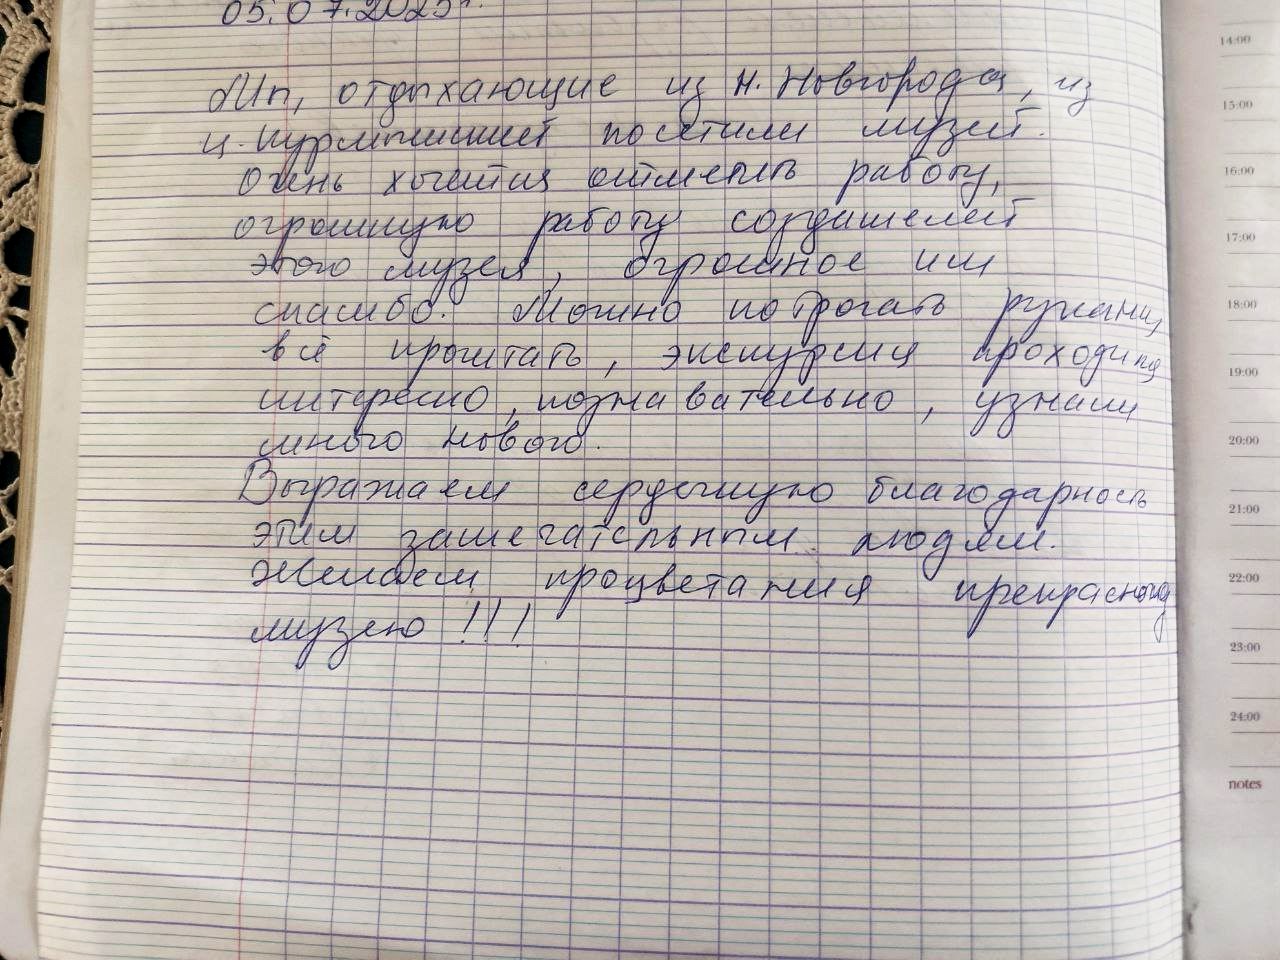 05.07.2025г.
Мы, отдыхающие из Н. Новгорода, из
посетили музей.
Очень хочется отметить работу,
огромную работу создателей
этого музея, огромное им
спасибо. Можно потрогать руками,
всё прочитать, экскурсия проходит
интересно, познавательно, узнали
много нового.
Выражаем сердечную благодарность
этим замечательным людям.
Желаем процветания прекрасному
музею!!!
14:00
15:00
16:00
17:00
18:00
19:00
20:00
21:00
22:00
23:00
24:00
notes